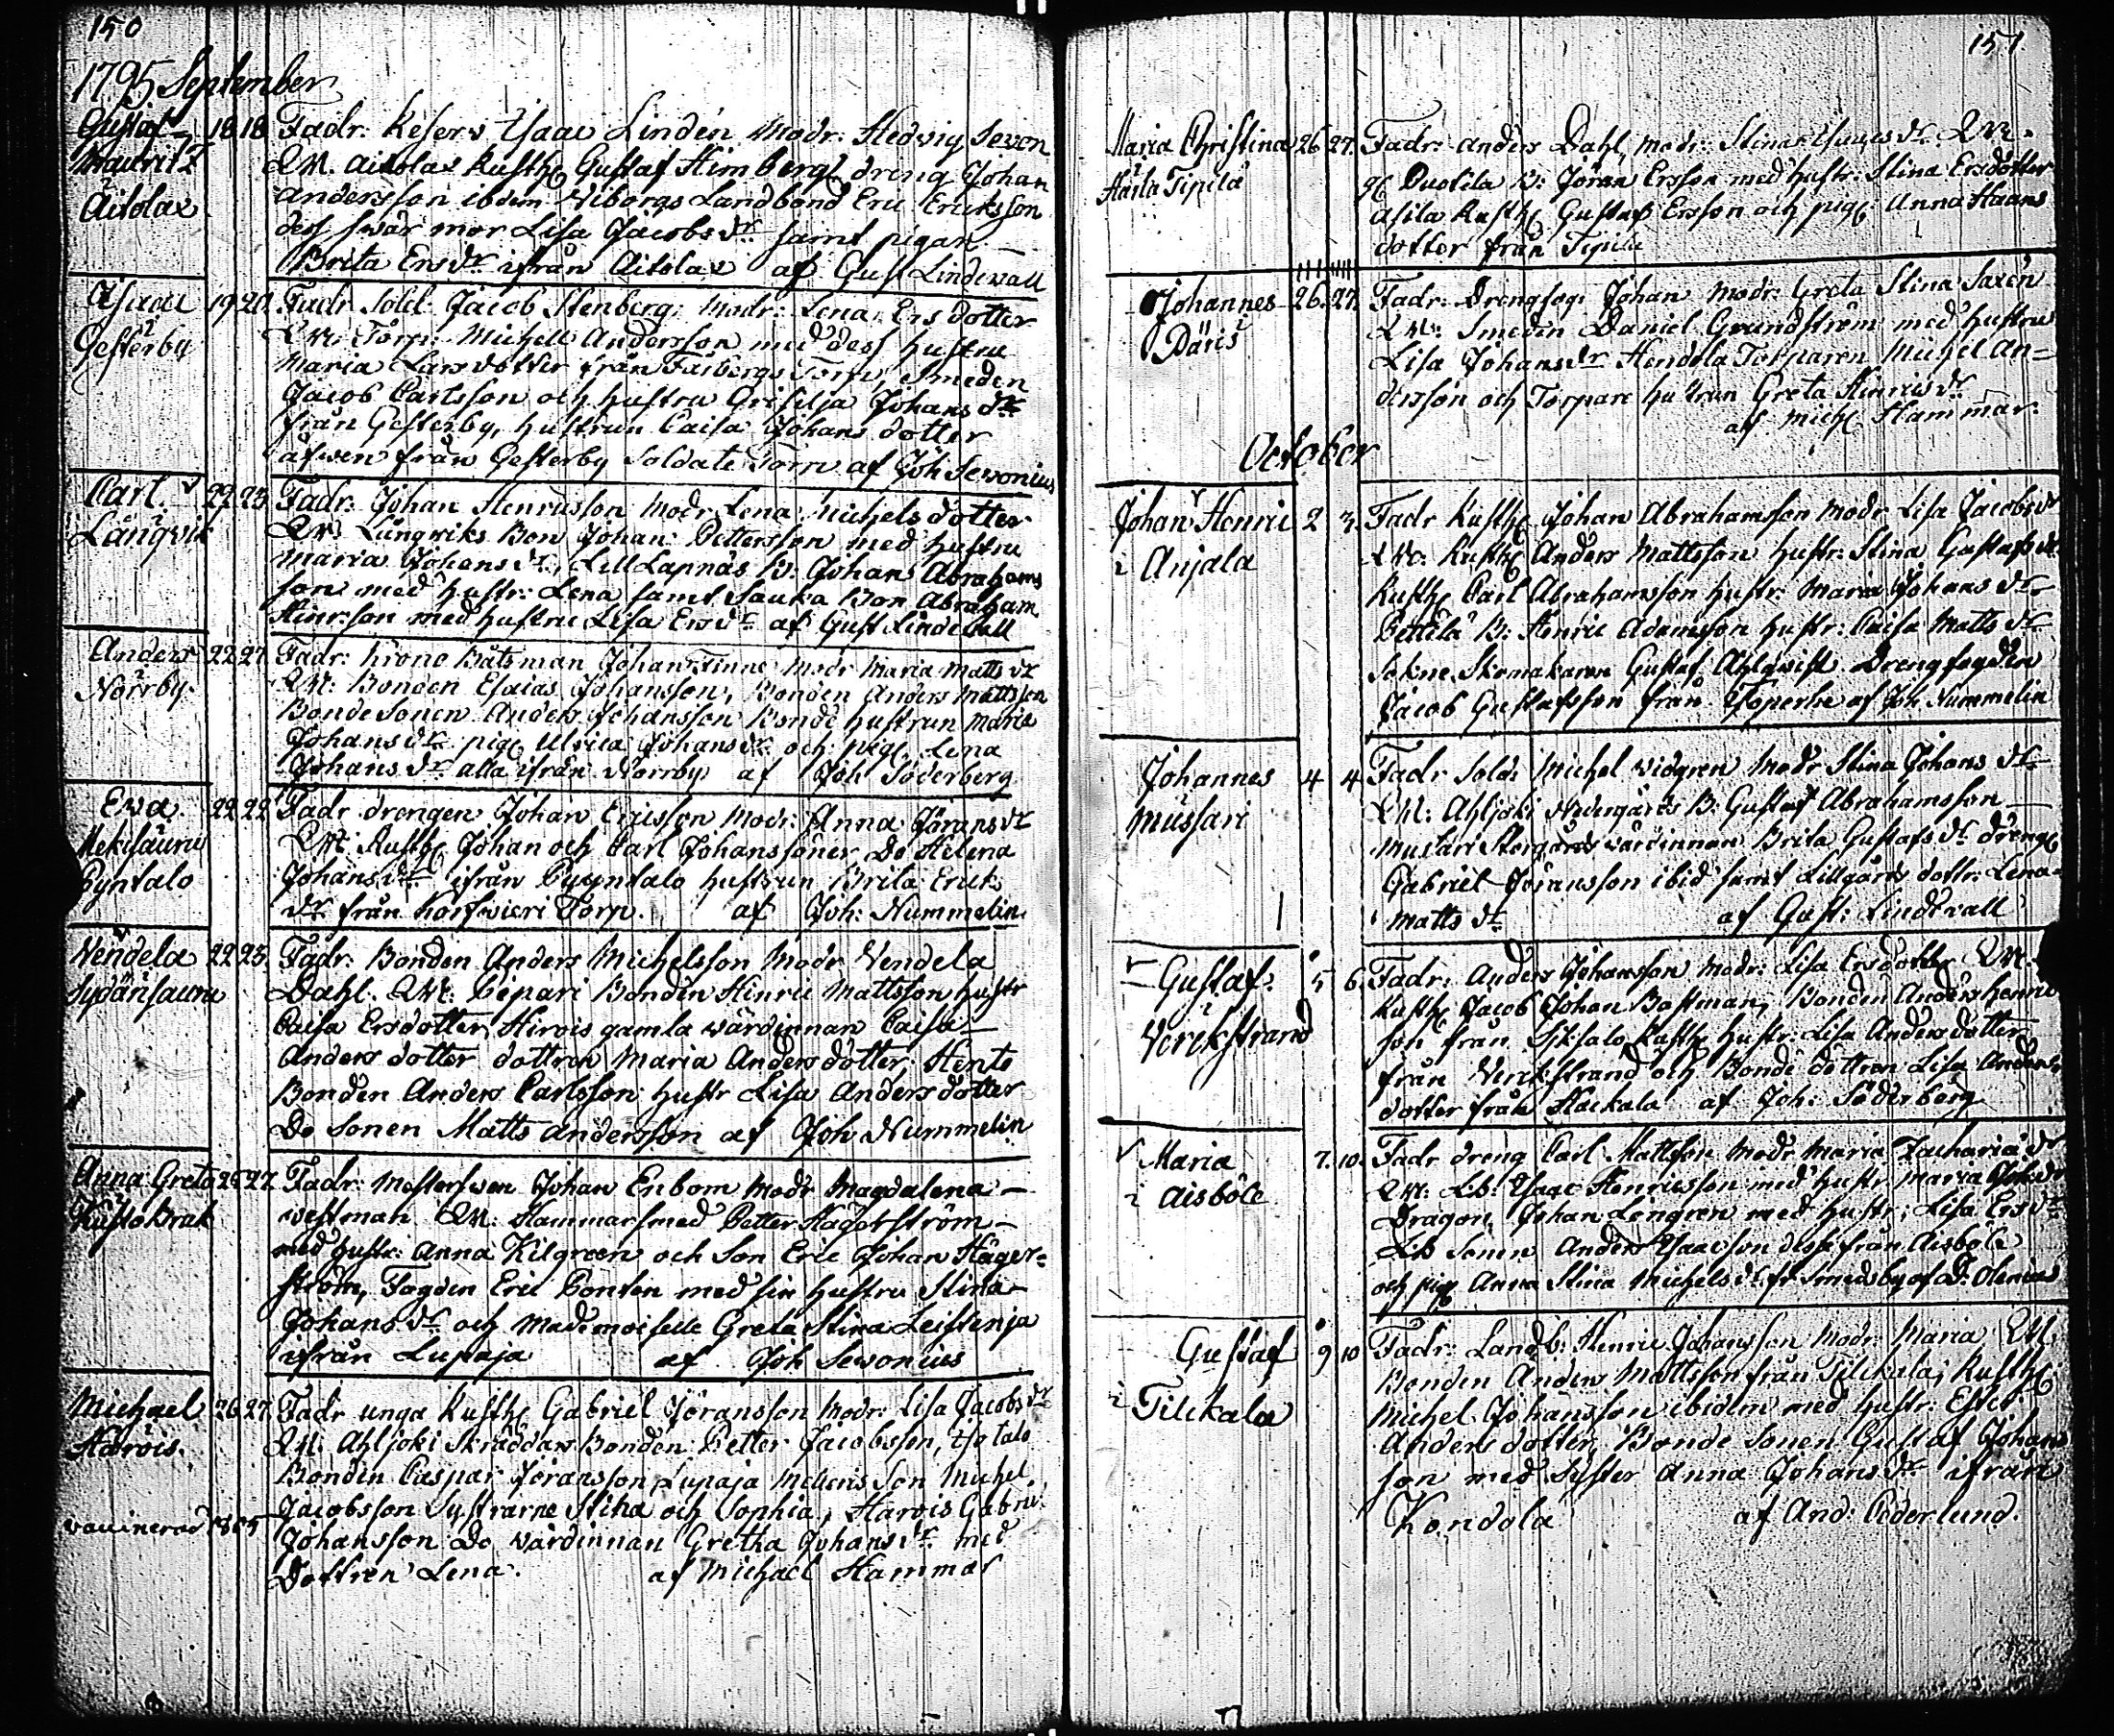 150
1795 September
Gustaf Mauritz Aitolax 18 18 Fadr: Reserv Isaac Lindén Modr. Hedvig Sevon
QM. Aitolax Rusth. Gustaf Himberg dreng Johan
Andersson ibdem Viborgs Landbond Eric Ericksson
dess swär mor Lisa Jacobs dr samt pigan
Brita Ers dr ifrån Aitolax af Gust Lindevall
Isaac i Gesterby 19 20 Fadr Sold. Jacob Stenberg Modr: Lena Ers dotter
QM: Torp: Michell Andersson med dess hustru
Maria Larsdotter från Torp, Smeden
Jacob Carlsson och hustru Grisilja Johans dr
från Gesterby, hustrun Caisa Johans dotter
äfwen från Gesterby Soldate Torp af Joh Sevonius
Carl Långvik 22 23 Fadr: Johan Henricsson Modr Lena Michelsdotter
QM Långwiks Bon Johan Pettersson med hustru
Maria Johans dr, Lill Lapnäs B: Johan Abrahams
son med hustr: Lena samt Sauka Bon Abraham
Hinrsson med hustru Lisa Ers dr af Gust Lindevall
Anders Norrby 22 27 Fadr: Krono Båtsman Johan Finne Modr Maria Matts dr
QM: Bonden Esaias Johansson, Bonden Anders Mattsson
Bondesonen Anders Johansson Bonde hustrun Maria
Johans dr pig. Ulrica Johans dr och pig. Lena
Johans dr alla ifrån Norrby af Joh Söderberg
Eva Pyntalo 22 22 Fadr drengen Johan Ericsson Modr: Anna Jörans dr
QM: Rusth. Johan och Carl Johanssöner Do Helena
Johans dr ifrån Pyyntalo hustrun Brita Erics
dr från Torp. af Joh: Nummelin
Vendela Sydänsauru 22 23 Fadr: Bonden Anders Michelsson Modr Vendela
Dahl. QM: Pepari Bonden Hinric Mattsson hustr
Caisa Ersdotter, Hirvis gamla wärdinnan Caisa
Anders dotter dottren Maria Anders dotter, Hents
Bonden Anders Carlsson hustr Lisa Anders dotter
Do Sonen Matts Andersson af Joh Nummelin
Anna Greta Bruk 26 27 Fadr: Mästersven Johan Enbom Modr Magdalena
Westman QM: Hammarsmed Petter Hagerström
med hustr: Anna Kilgreen och Son Eric Johan Häger-
ström, Fogden Eric Ponten med sin hustru Stina
Johans dr och Mademoiselle Greta Stina Leistenja
ifrån Lupaja af Joh Sevonius
Michael Harvis 26 27 Fadr unga Rusth. Gabriel Jöransson Modr: Lisa Jacobs dr
QM: Ahljoki Skräddars Bonden Petter Jacobsson,
Bonden Caspar Jöransson, Lupaja Son Michel
Jacobsson Systrarne Stina och Sophia, Harvis Gabri
Johansson Do wärdinnan Gretha Johans dr med
Dottren Lena. af Michael Hammar
vaccinerad 1805
151
Maria Christina Tipilä 26 27 Fadr: Anders Dahl, Modr: Stina Isaacs dr QM
Duotila B: Jöran Ersson med hustr: Stina Ersdotter
Rusth. Gustaf Ersson och pig: Anna Haans
dotter från Tipilä
Johannes Däris 26 27 Fadr: Drengfog: Johan Modr: Greta Stina Saxén
QM: Smeden Daniel Grundström med hustru
Lisa Johans dr Hendola Torparen Michel An-
dersson och Torpare hustrun Greta Hinrics dr
af Mich. Hammar
October
Johan Henric i Anjala 2 3 Fadr Rusth. Johan Abrahamsson Modr Lisa Jacobs dr
QM: Rusth. Anders Mattsson hustr: Stina Gustafs dr
Rusth. Carl Abrahamsson hustr: Maria Johans dr
Pettilä B: Henric Adamsson hustr: Caisa Matts dr
Sokne Skomakaren Gustaf Ahlqvist Drengfogden
Jacob Gustafsson från af Joh Nummelin
Johannes Mussari 4 4 Fadr Sold: Michel Vidgren Modr Stina Johans dr
QM: Ahljoki Nedergårds B: Gustaf Abrahamsson
Mustari Storgårds wärdinnan Brita Gustafs dr dreng.
Gabriel Jöransson ibid samt Lillgårds dottr: Lena
Matts dr af Gust: Lindevall
Gustaf i Verekstrand 5 6 Fadr: Anders Johansson Modr: Lisa Ersdotter QM.
Rusth. Jacob Johan Bostman, Bonden Anders Henric
son från Rusth. hustr: Lisa Anders dotter
från Verekstrand och Bonde dottren Lisa Anders
dotter från Haikala af Joh: Söderberg
Maria i Aisböle 7. 10. Fadr dreng Carl Mattsson Modr Maria Zacharia dr
QM: Lb: Isaac Henricsson med hustr: Maria Joh dr
Dragon Johan Lengren med hustr: Lisa Ers dr
Lb Sonen Anders Isaacsson dess från Aisböle
och pig. Anna Stina Michels dr fr Smedsby af D: Olenius
Gustaf i Tilikala 9 10 Fadr: Landb: Henric Johansson Modr: Maria QM
Bonden Anders Mattsson från Tilikala, Rusth.
Michel Johansson ibidem med hustr: Ester
Anders dotter, Bonde Sonen Gustaf Johans
son med Syster Anna Johans dr ifrån
Kondola af And: Cederlund.